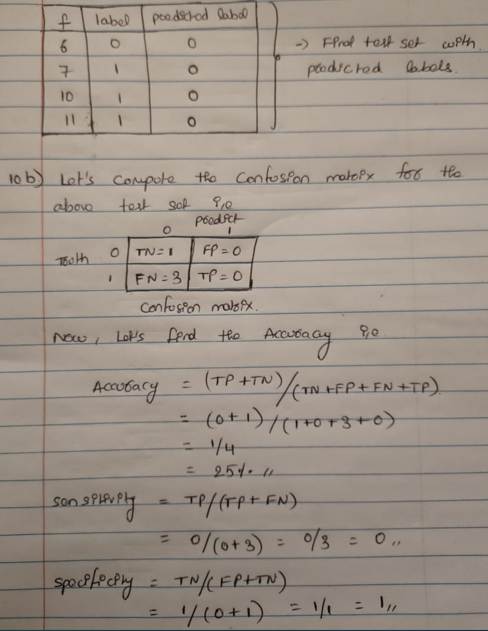 f label predicted label
6 0 0
7 1 0
10 1 0
11 1 0
-> Final test set with
predicted labels.
10 b) Let's compute the confusion matrix for the
above test set i,e
predict
0 1
Truth 0 TN = 1 FP = 0
1 FN = 3 TP = 0
confusion matrix.
Now, Let's find the Accuracy i,e
Accuracy = (TP+TN)/(TN+FP+FN+TP)
= (0+1)/(1+0+3+0)
= 1/4
= 25%.,,
sensitivity = TP/(TP+FN)
= 0/(0+3) = 0/3 = 0,,
specificity = TN/(FP+TN)
= 1/(0+1) = 1/1 = 1,,